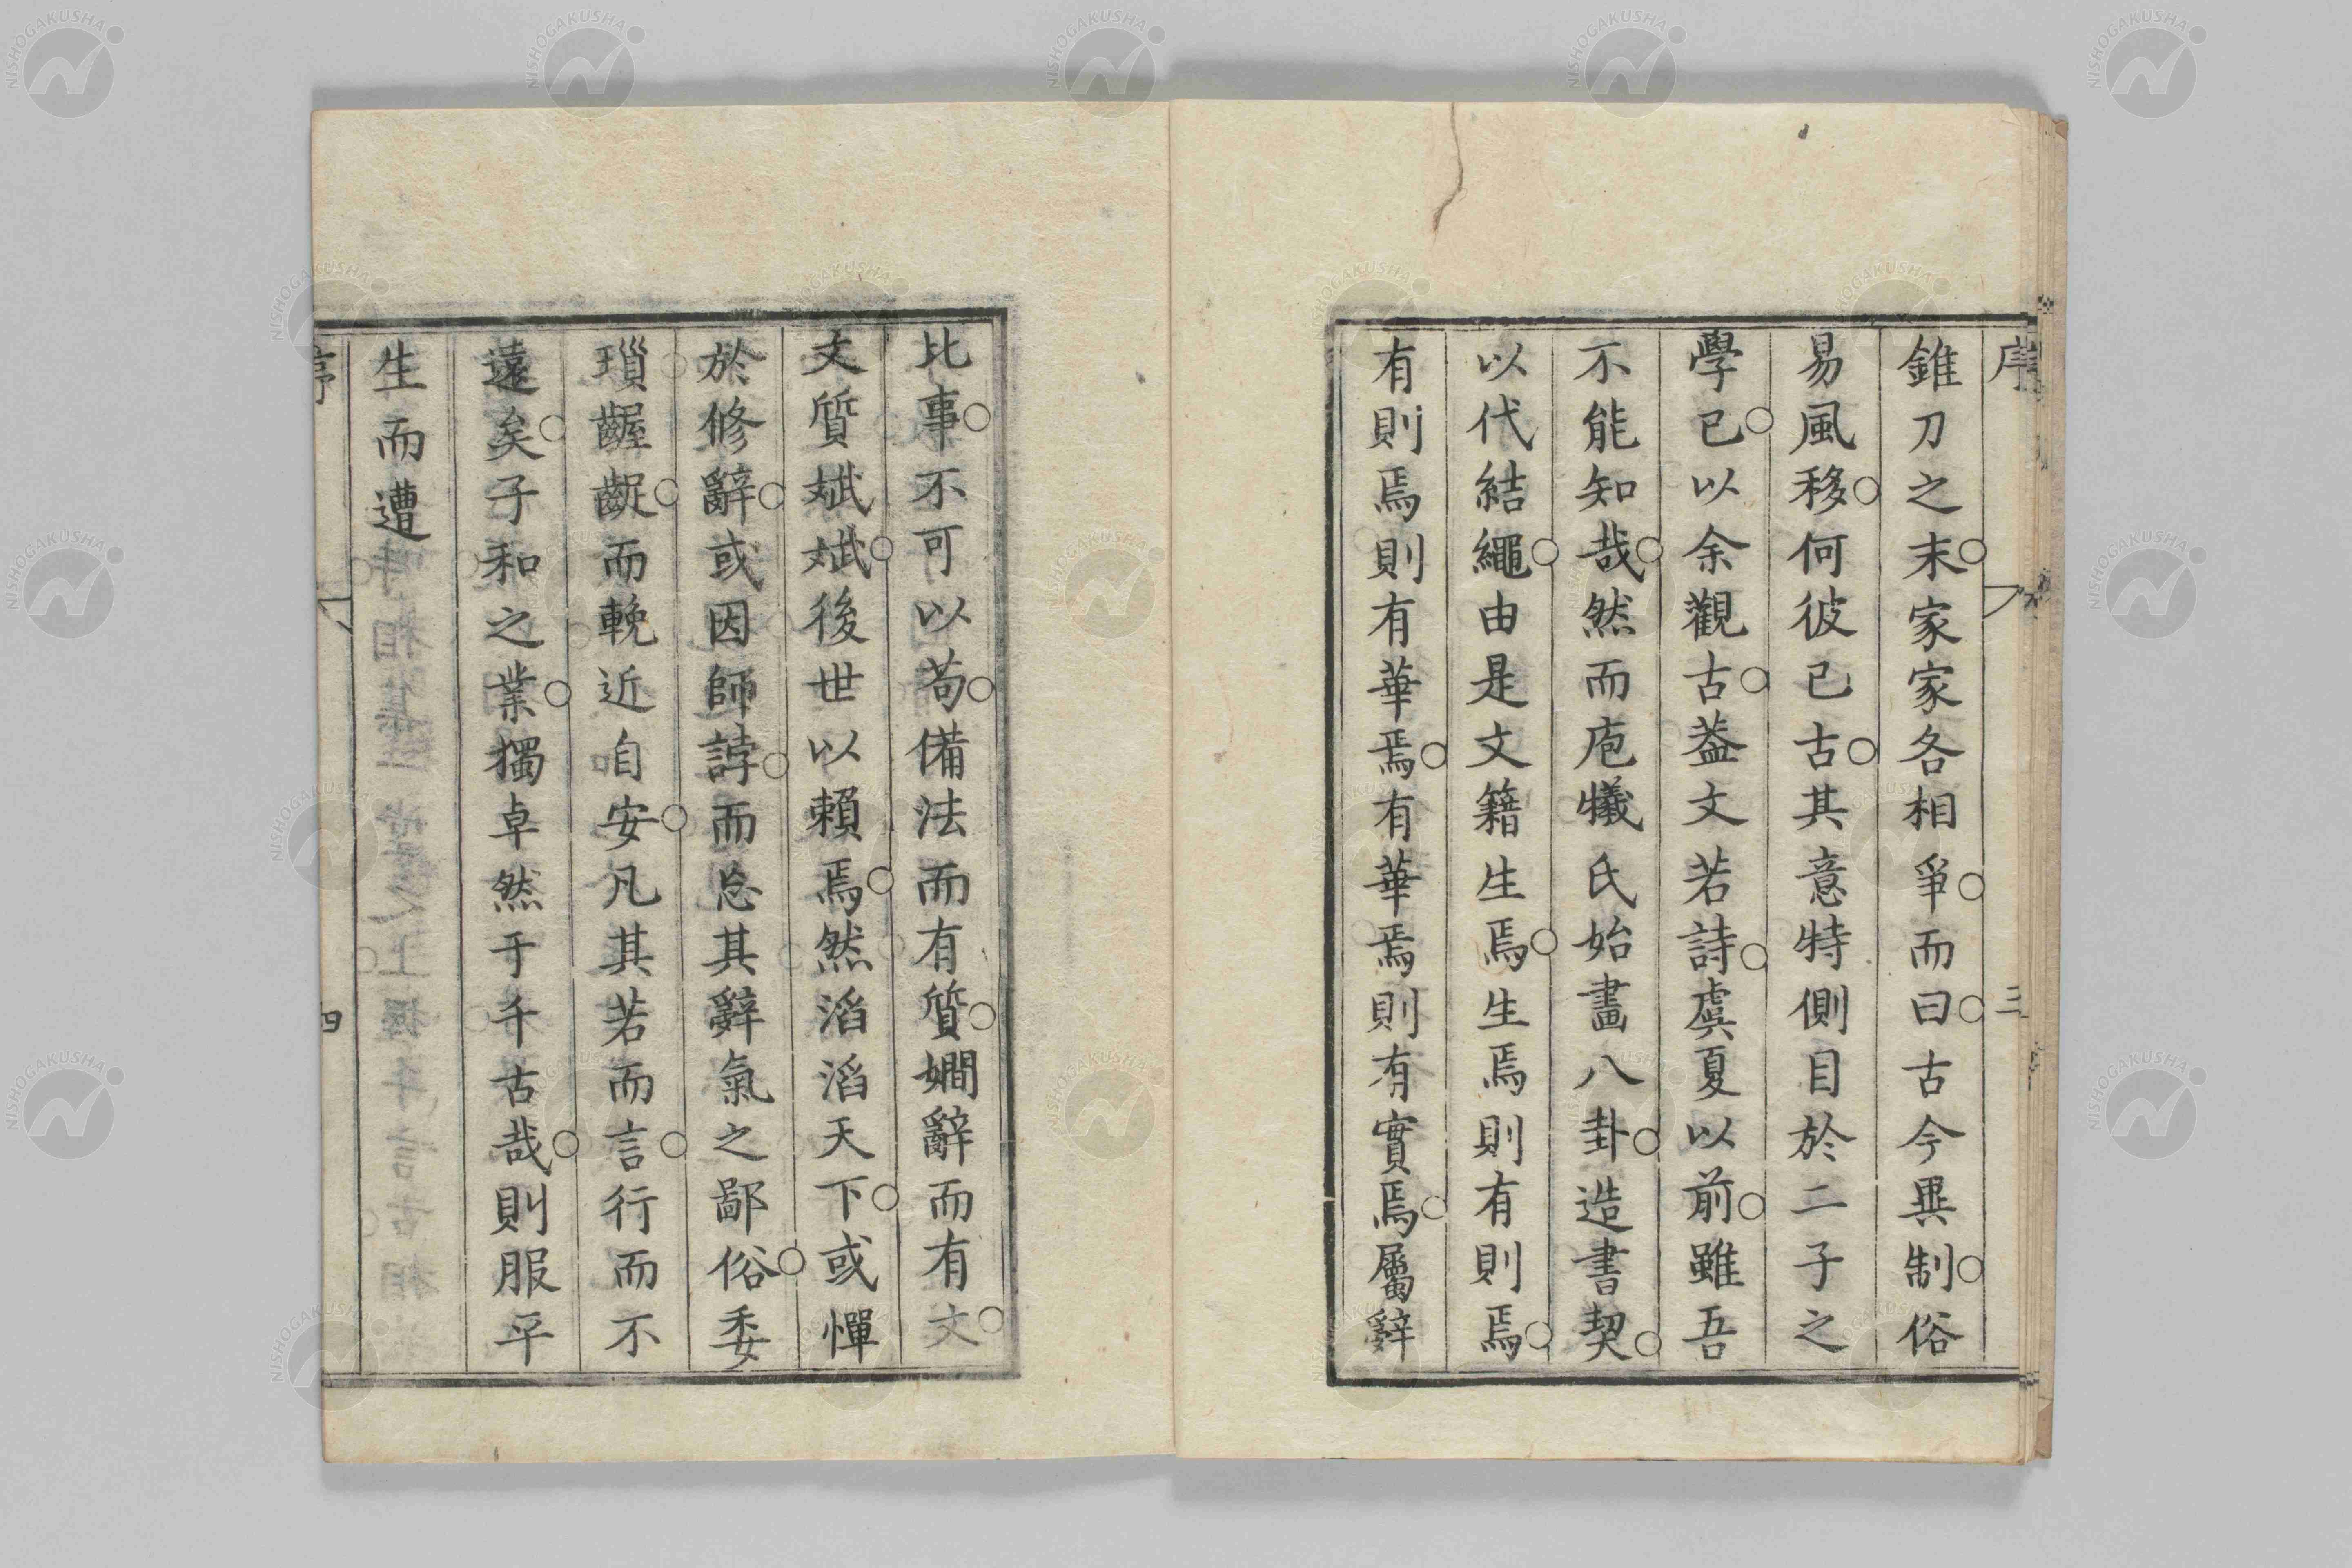 序 三
錐刀之末○家家各相爭○而曰○古今異制○俗
易風移○何彼已古○其意特側目於二子之
學已○以余觀古○蓋文若詩○虞夏以前○雖吾
不能知哉○然而庖犧氏始畫八卦○造書契○
以代結繩○由是文籍生焉○生焉則有則焉○
有則焉則有華焉○有華焉則有實焉○屬辭
比事○不可以苟○備法而有質○嫺辭而有文○
文質斌斌○後世以賴焉○然滔滔天下○或憚
於修辭○或因師誖○而忘其辭氣之鄙俗○委
瑣齷齪○而輓近自安○凡其若而言○行而不
遠矣○子和之業○獨卓然于千古哉○則服平
生而遭
序 四
NISHOGAKUSHA